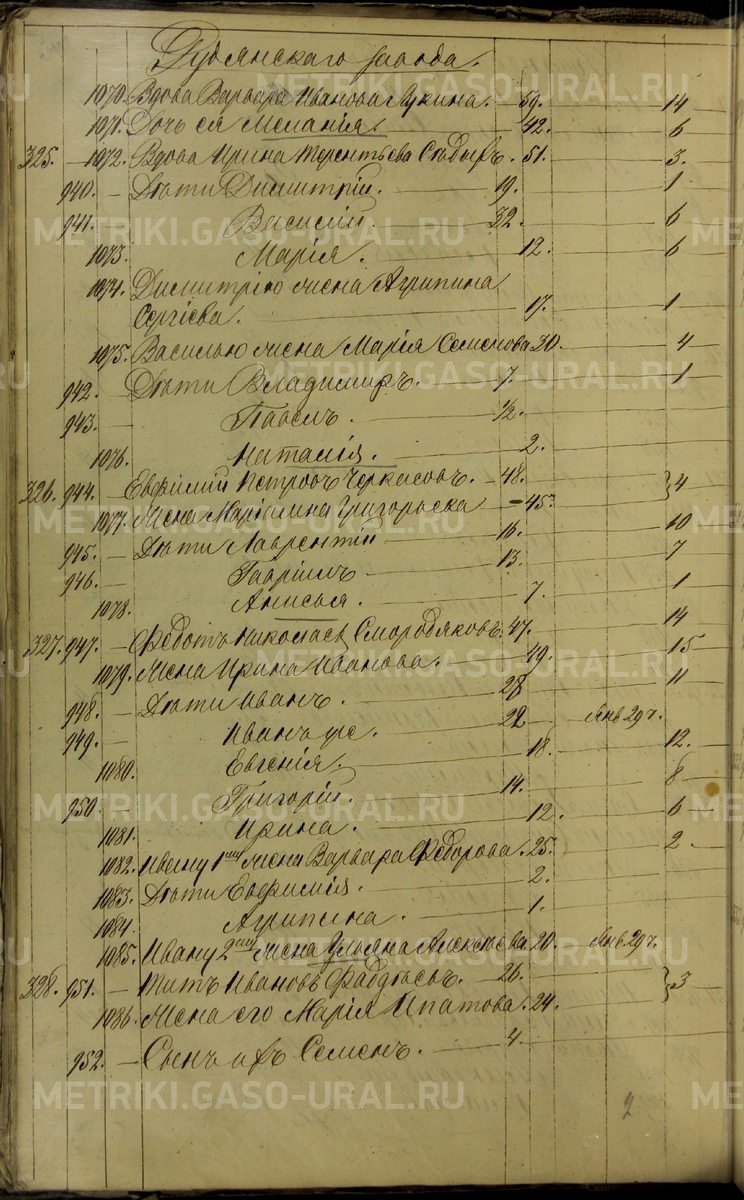 Рудянскаго завода.
1070. Вдова Варвара Иванова Лукина. 59. 14
1071. Дочь ея Меланія. 42. 6
325. 1072. Вдова Ирина Терентьева 51. 3.
940. Дѣти Димитрій. 19. 1
941. Василій. 32. 6
1073. Марія. 12. 6
1074. Димитрію жена Агрипина
Сергіева. 17. 1
1075. Василью жена Марія Семенова 30. 4
942. Дѣти Владимиръ. 7. 1
943. Павелъ. ½.
1076. Наталія. 2.
326. 944. Евфимій Петровъ Черкасовъ. 48. } 4
1077. Жена Маріамна Григорьева 45.
945. Дѣти Лаврентій 16. 10
946. Гавріилъ 13. 7
1078. Анисья. 7. 1
327. 947. Ѳедотъ Николаевъ Смородяковъ. 47. 14
1079. Жена Ирина Иванова. 49. 15
948. Дѣти Иванъ. 28 11
949. Иванъ же. 22 Янв 29 ч.
1080. Евгенія. 18. 12.
950. Григорій. 14. 8
1081. Ирина. 12. 6
1082. Ивану 1му жена Варвара Ѳедорова. 25. 2
1083. Дѣти Евфимія. 2.
1084. Агрипина. 1.
1085. Ивану 2му жена Ульяна Алексѣева 20. Янв 29 ч.
328. 951. Титъ Ивановъ Фаддѣевъ. 26. } 3
1086. Жена его Марія Ипатова. 24.
952. Сынъ ихъ Семенъ. 4.
2
METRIKI.GASO-URAL.RU